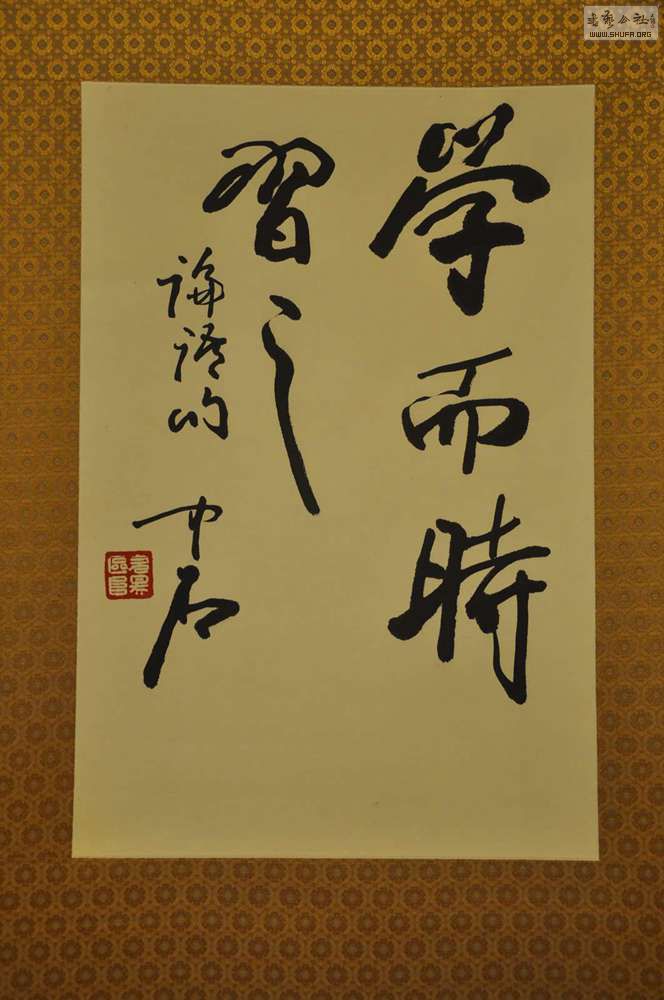 學而時
習之
論語句
中石
書藝公社
WWW.SHUFA.ORG